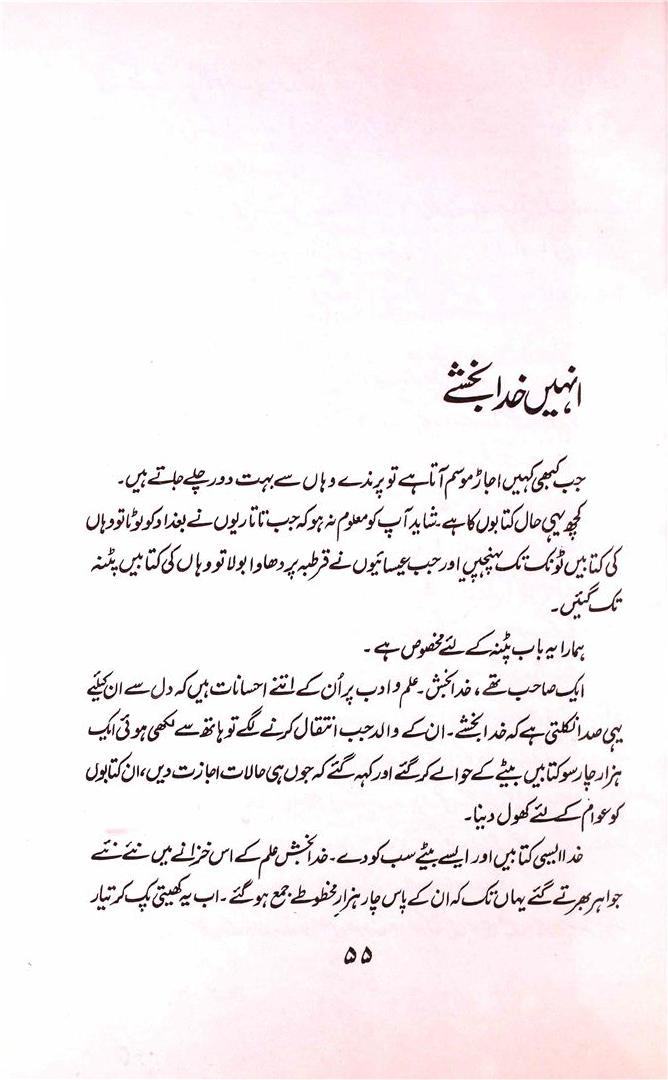 انہیں خدا بخشے
جب کبھی کہیں اجاڑ موسم آتا ہے تو پرندے وہاں سے بہت دور چلے جاتے ہیں۔
کچھ یہی حال کتابوں کا ہے۔ شاید آپ کو معلوم نہ ہو کہ جب تاتاریوں نے بغداد کو لوٹا تو وہاں
کی کتابیں ٹونک تک پہنچیں اور جب عیسائیوں نے قرطبہ پر دھاوا بولا تو وہاں کی کتابیں پٹنہ
تک گئیں۔
ہمارا یہ باب پٹنہ کے لئے مخصوص ہے۔
ایک صاحب تھے، خدا بخش۔ علم و ادب پر اُن کے اتنے احسانات ہیں کہ دل سے ان کیلئے
یہی صدا نکلتی ہے کہ خدا بخشے۔ ان کے والد جب انتقال کرنے لگے تو ہاتھ سے لکھی ہوئی ایک
ہزار چار سو کتابیں بیٹے کے حوالے کر گئے اور کہہ گئے کہ جوں ہی حالات اجازت دیں، ان کتابوں
کو عوام کے لئے کھول دینا۔
خدا ایسی کتابیں اور ایسے بیٹے سب کو دے۔ خدا بخش علم کے اس خزانے میں نئے نئے
جواہر بھرتے گئے یہاں تک کہ ان کے پاس چار ہزار مخطوطے جمع ہو گئے۔ اب یہ کھیتی پک کر تیار
۵۵